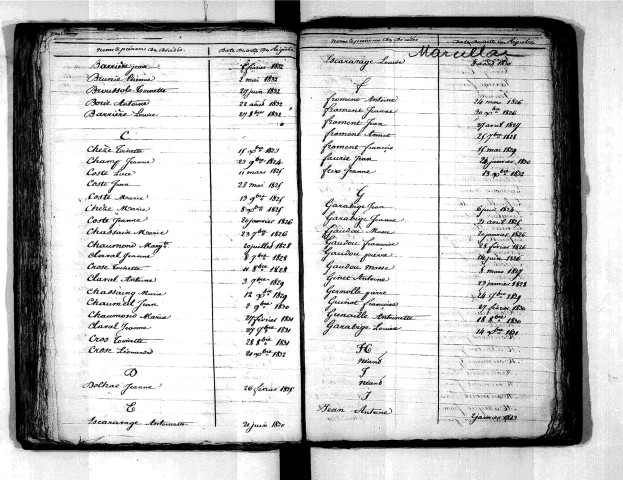 Noms et prénoms des Décédés Date des actes des Registres
Barrière Jean février 1832
Brunie Etienne 2 mai 1832
Broussole Toinette 27 juin 1832
Borie Antoine 22 août 1832
Barrière Louise 27 8bre 1832
C
Chèze Toinette 15 xbre 1823
Champ Jeanne 23 9bre 1824
Coste Luce 11 mars 1825
Coste Jean 28 mai 1825
Coste Marie 13 9bre 1825
Chèze Marie 8 xbre 1825
Coste Jeanne 20 janvier 1826
Chassain Marie 23 7bre 1826
Chaumond Marg. 20 juillet 1828
Claval Jeanne 8 7bre 1828
Crose Toinette 11 8bre 1828
Claval Antoine 3 7bre 1829
Chassaing Marie 12 xbre 1829
Chaumeil Jean 8 9bre 1830
Chaumond Marie février 1831
Claval Jeanne 27 9bre 1831
Cros Toinette 28 8bre 1831
Crose Léonard 20 xbre 1832
D
Dolhac Jeanne 26 février 1825
E
Escaravage Antoinette 20 juin 1830
Noms et prénoms des Décédés Date des actes des Registres
Marcillac
Escaravage Louise
F
froment Antoine 24 mars 1826
froment Jeanne 20 xbre 1826
froment Jean 27 avril 1827
froment Annet 25 7bre 1828
froment françois 15 mai 1829
faurie Jean 24 janvier 1830
feix Jeanne 13 xbre 1832
G
Garabige Jean 6 juin 1824
Garabige Jeanne 21 avril 1825
Gaudou 20 janvier 1826
Gaudou françoise 28 février 1826
Gaudou pierre 14 juin 1826
Gaudou 8 mars 1827
Ginet Antoine 23 janvier 1828
Gernolle pierre 24 9bre 1829
Guinot françoise 27 février 1830
Grenaille Antoinette 18 8bre 1830
Garabige Louise 14 xbre 1831
H
Néant
I
Néant
J
Jean Antoine 2 janvier 1823